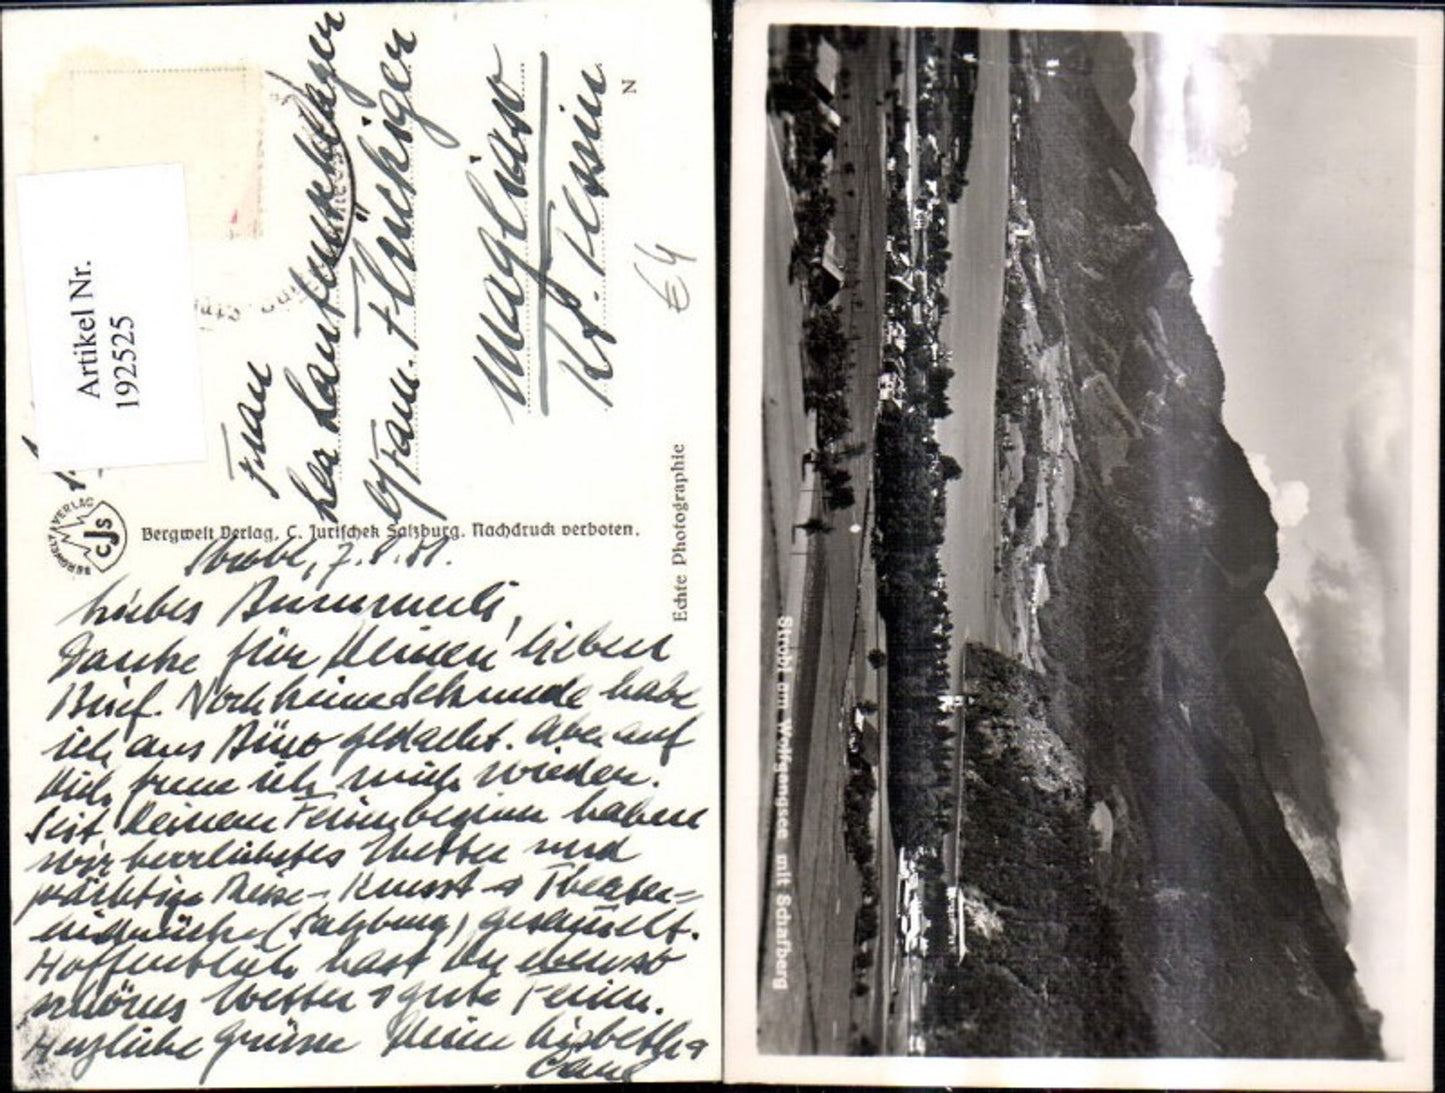 Artikel Nr.
192525
Frau
Lea
Fam. Flückiger
Magliaso
Kt. Tessin
N
€4
BERGWELT VERLAG
CJS
Bergwelt Verlag, C. Jurischek Salzburg. Nachdruck verboten.
Echte Photographie
Strobl, 7.8.51.
Liebes
Danke für Deinen lieben
Brief. Noch keine Sekunde habe
ich ans Büro gedacht. Aber auf
Dich freue ich mich wieder.
Seit Deinem Ferienbeginn haben
wir herrlichstes Wetter und
prächtige Reise- Kunst- & Theater-
eindrücke (Salzburg) gesammelt.
Hoffentlich hast Du ebenso
schönes Wetter & gute Ferien.
Herzliche Grüsse Deine Lisbeth &
Strobl am Wolfgangsee mit Schafberg